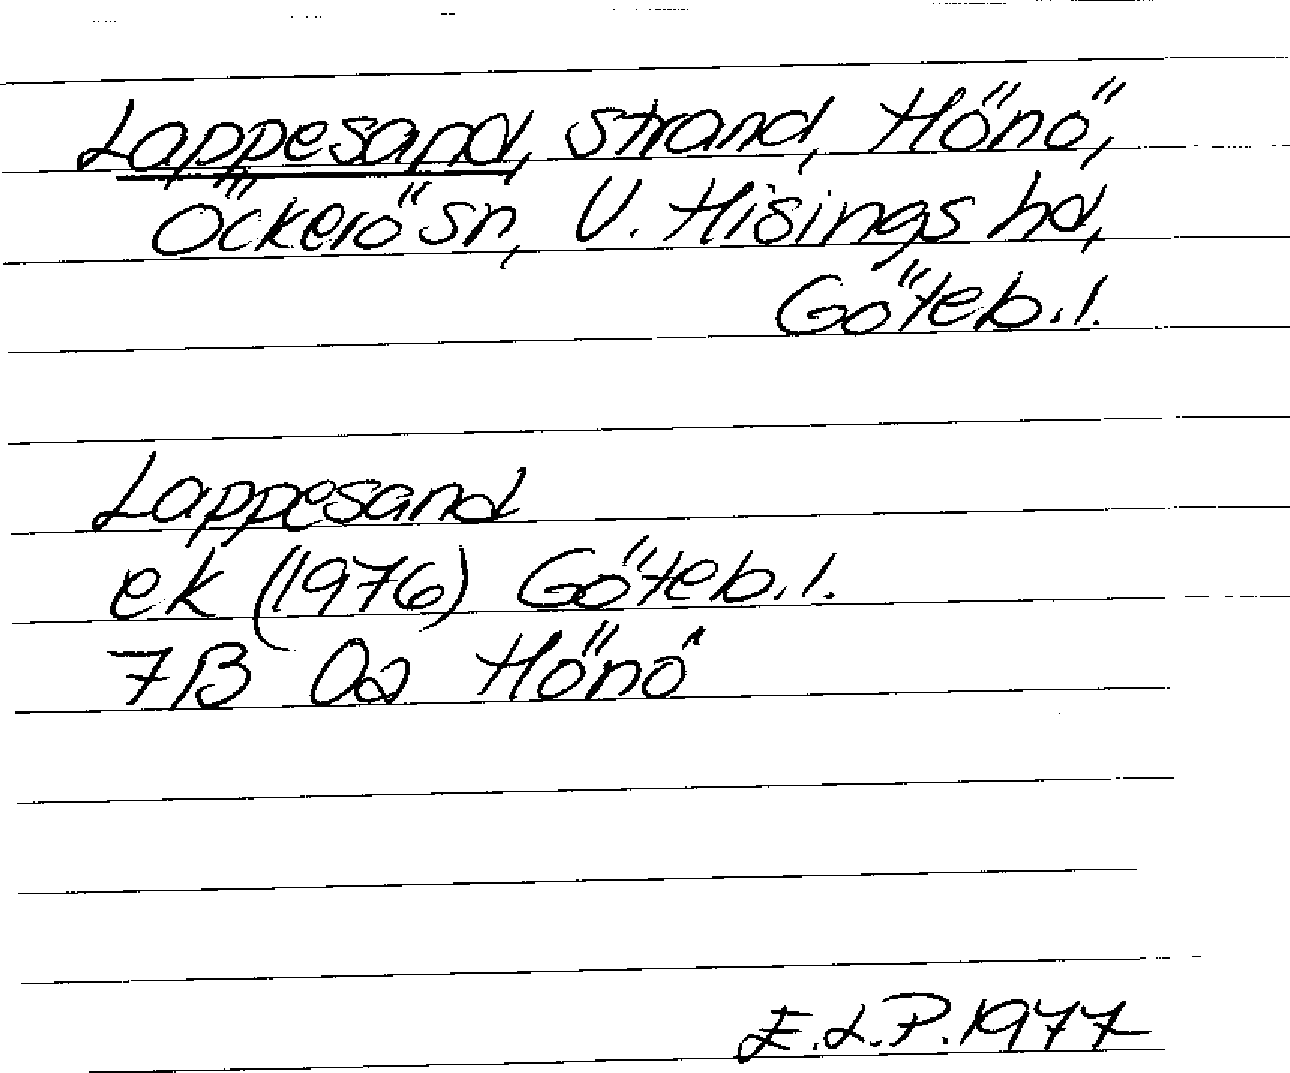 Lappesand, strand, Hönö,
Öckerö sn, V. Hisings hd,
Göteb.l.
Lappesand
ek (1976) Göteb.l.
7B 0a Hönö
E.L.P. 1977